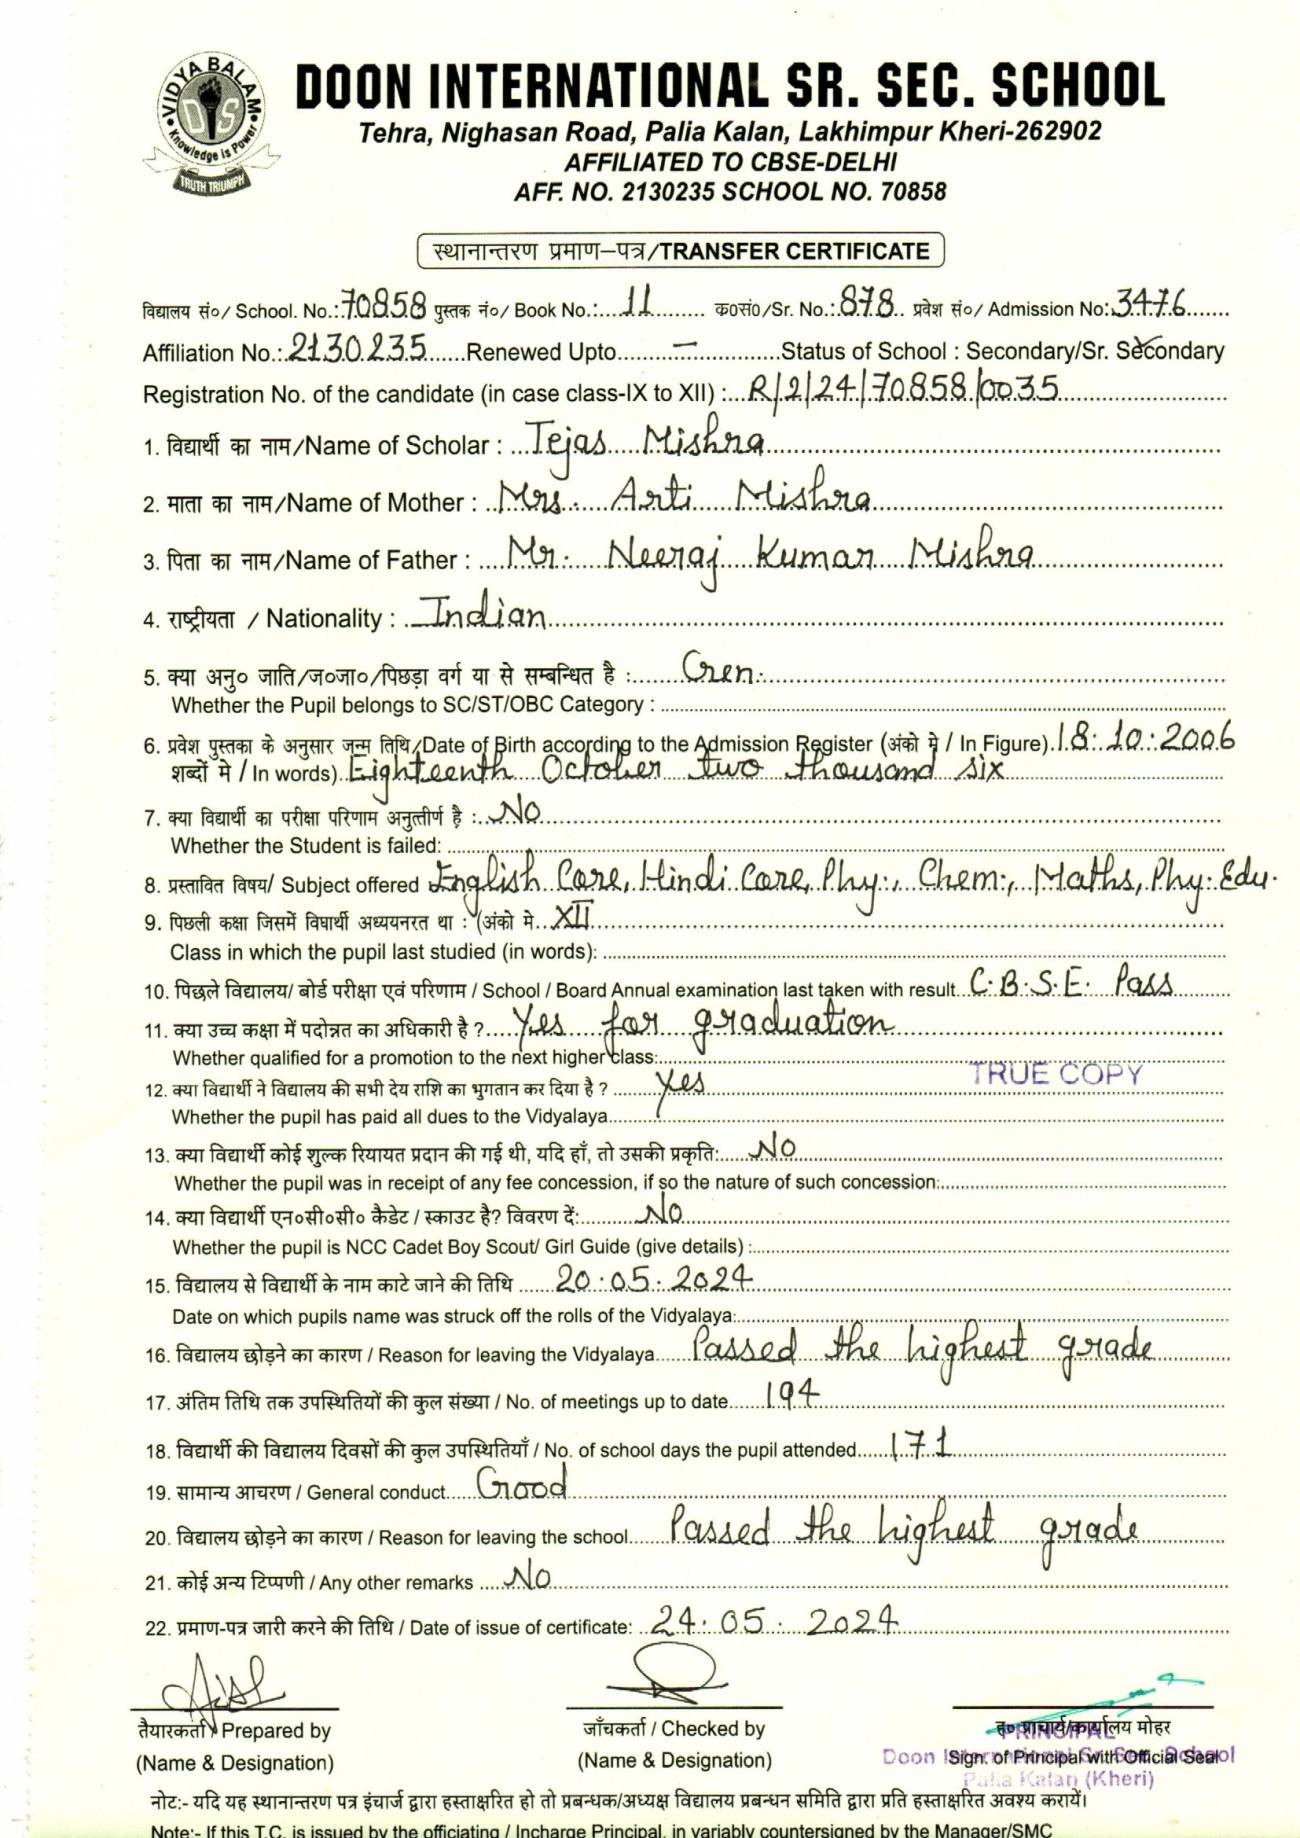 VIDYA BALAM
DIS
Knowledge is Power
TRUTH TRIUMPH
DOON INTERNATIONAL SR. SEC. SCHOOL
Tehra, Nighasan Road, Palia Kalan, Lakhimpur Kheri-262902
AFFILIATED TO CBSE-DELHI
AFF. NO. 2130235 SCHOOL NO. 70858
स्थानान्तरण प्रमाण–पत्र/TRANSFER CERTIFICATE
विद्यालय सं०/ School. No.: 70858 पुस्तक नं०/ Book No.: 11 क०सं०/Sr. No.: 878 प्रवेश सं०/ Admission No: 3476
Affiliation No.: 2130235 Renewed Upto — Status of School : Secondary/Sr. Secondary
Registration No. of the candidate (in case class-IX to XII) : R/2/24/70858/0035
1. विद्यार्थी का नाम/Name of Scholar : Tejas Mishra
2. माता का नाम/Name of Mother : Mrs. Arti Mishra
3. पिता का नाम/Name of Father : Mr. Neeraj Kumar Mishra
4. राष्ट्रीयता / Nationality : Indian
5. क्या अनु० जाति/ज०जा०/पिछड़ा वर्ग या से सम्बन्धित है : Gen.
Whether the Pupil belongs to SC/ST/OBC Category :
6. प्रवेश पुस्तका के अनुसार जन्म तिथि/Date of Birth according to the Admission Register (अंको मे / In Figure) 18.10.2006
शब्दों मे / In words) Eighteenth October two thousand six
7. क्या विद्यार्थी का परीक्षा परिणाम अनुत्तीर्ण है : No
Whether the Student is failed:
8. प्रस्तावित विषय/ Subject offered English Core, Hindi Core, Phy., Chem., Maths, Phy. Edu.
9. पिछली कक्षा जिसमें विघार्थी अध्ययनरत था : (अंको मे XII
Class in which the pupil last studied (in words):
10. पिछले विद्यालय/ बोर्ड परीक्षा एवं परिणाम / School / Board Annual examination last taken with result C.B.S.E. Pass
11. क्या उच्च कक्षा में पदोन्नत का अधिकारी है ? Yes for graduation
Whether qualified for a promotion to the next higher class:
TRUE COPY
12. क्या विद्यार्थी ने विद्यालय की सभी देय राशि का भुगतान कर दिया है ? Yes
Whether the pupil has paid all dues to the Vidyalaya
13. क्या विद्यार्थी कोई शुल्क रियायत प्रदान की गई थी, यदि हाँ, तो उसकी प्रकृति: No
Whether the pupil was in receipt of any fee concession, if so the nature of such concession:
14. क्या विद्यार्थी एन०सी०सी० कैडेट / स्काउट है? विवरण दें: No
Whether the pupil is NCC Cadet Boy Scout/ Girl Guide (give details) :
15. विद्यालय से विद्यार्थी के नाम काटे जाने की तिथि 20.05.2024
Date on which pupils name was struck off the rolls of the Vidyalaya:
16. विद्यालय छोड़ने का कारण / Reason for leaving the Vidyalaya Passed the highest grade
17. अंतिम तिथि तक उपस्थितियों की कुल संख्या / No. of meetings up to date 194
18. विद्यार्थी की विद्यालय दिवसों की कुल उपस्थितियाँ / No. of school days the pupil attended 171
19. सामान्य आचरण / General conduct Good
20. विद्यालय छोड़ने का कारण / Reason for leaving the school Passed the highest grade
21. कोई अन्य टिप्पणी / Any other remarks No
22. प्रमाण-पत्र जारी करने की तिथि / Date of issue of certificate: 24.05.2024
तैयारकर्ता / Prepared by जाँचकर्ता / Checked by ह० प्राचार्य/कार्यालय मोहर
PRINCIPAL
(Name & Designation) (Name & Designation) Sign. of Principal with Official Seal
Doon International Sr. Sec. School
Palia Kalan (Kheri)
नोट:- यदि यह स्थानान्तरण पत्र इंचार्ज द्वारा हस्ताक्षरित हो तो प्रबन्धक/अध्यक्ष विद्यालय प्रबन्धन समिति द्वारा प्रति हस्ताक्षरित अवश्य करायें।
Note:- If this T.C. is issued by the officiating / Incharge Principal, in variably countersigned by the Manager/SMC